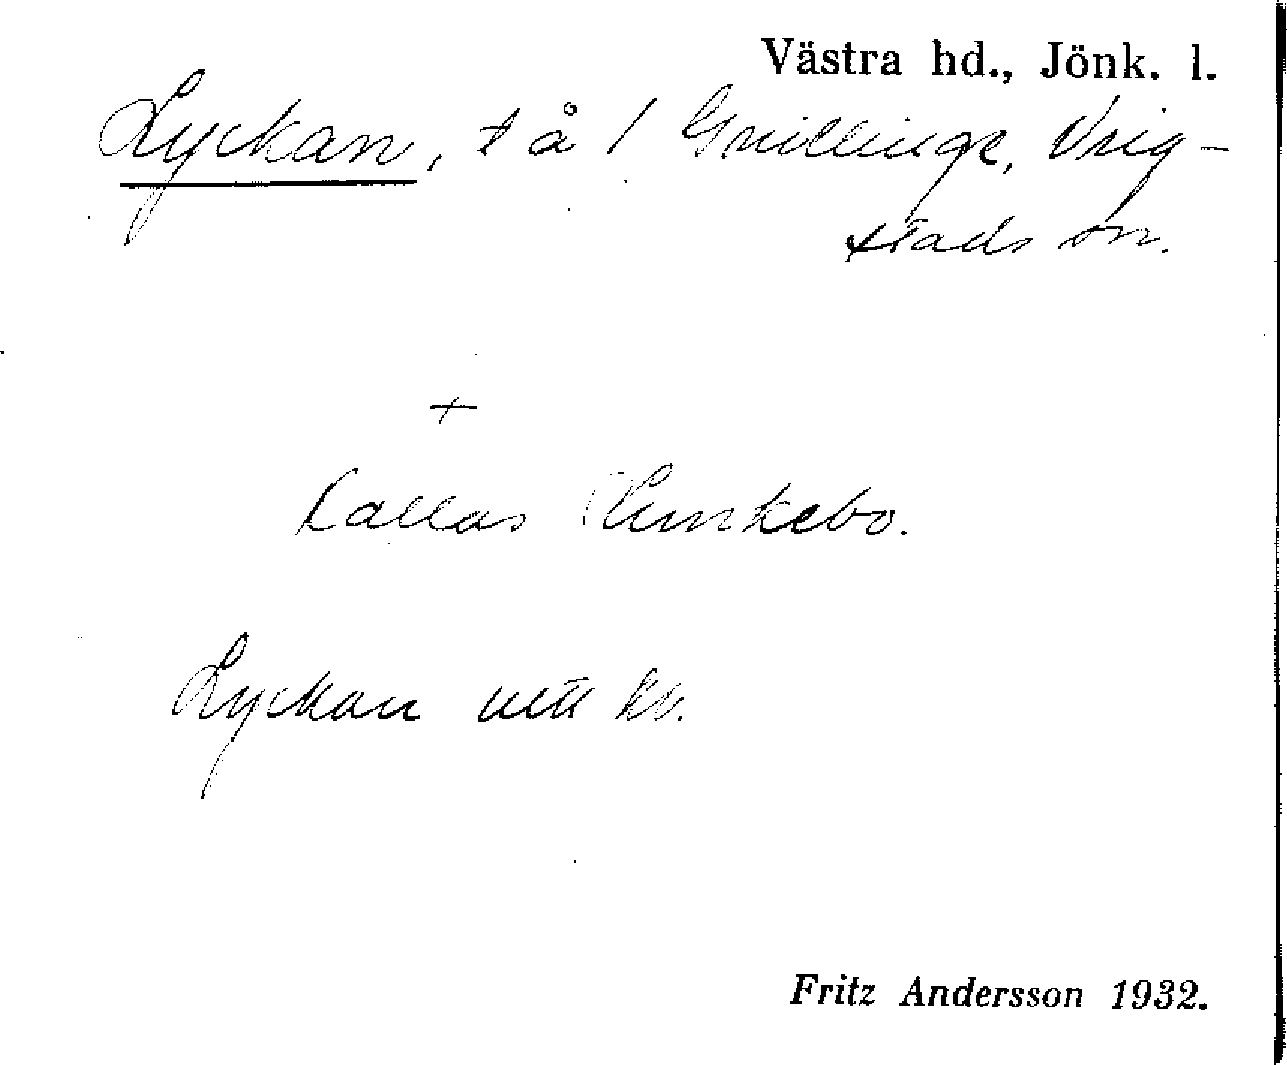 Västra hd., Jönk. l.
Lyckan, t å 1 Gnillinge, Vrig-
stads sn.
+
Kallas
Lyckan
Fritz Andersson 1932.